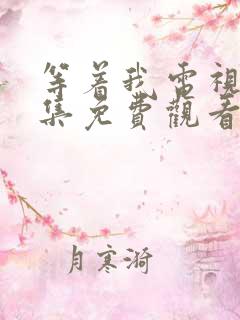 等着我电视
集免費觀看
月寒漪